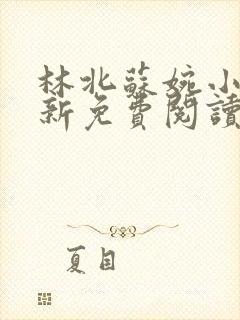 林北蘇婉小
新免費閱讀
夏目